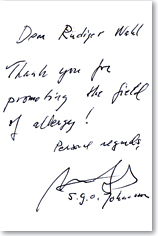 Dear Rudiger Wahl
Thank you for
promoting the field
of allergy!
Personal regards
S.G.O. Johansson